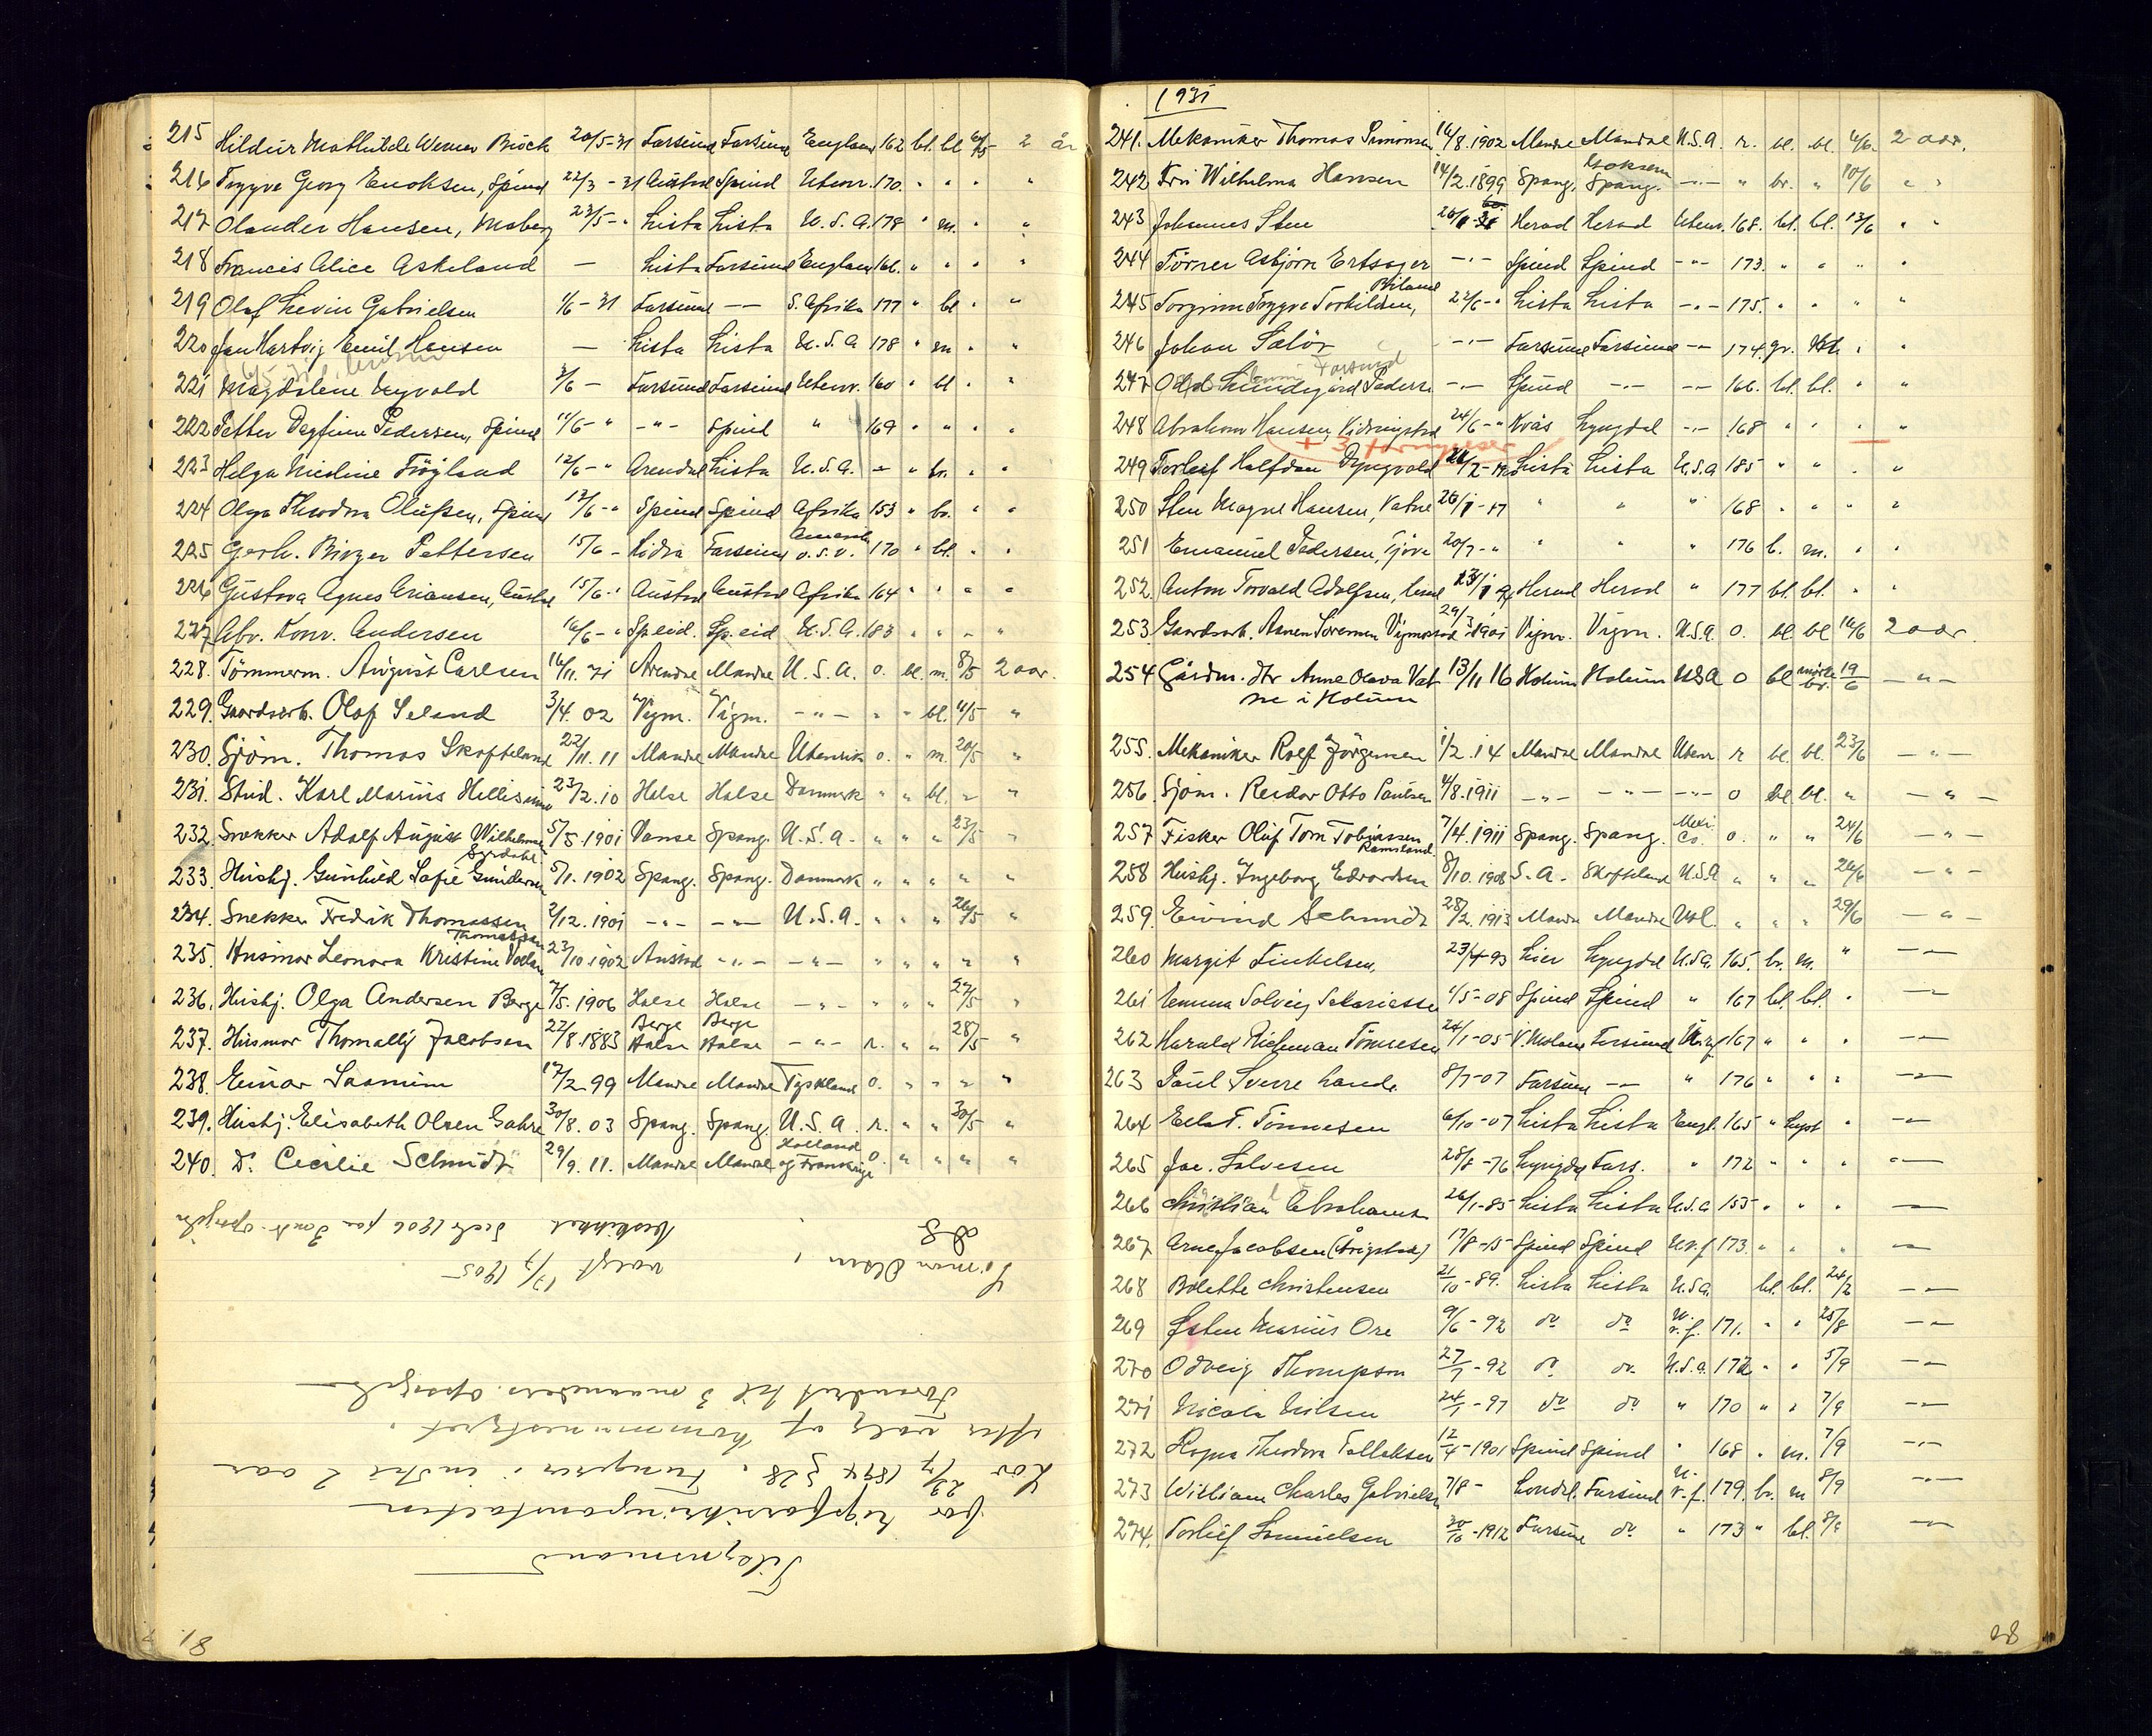 215 Hildur Mathilde Werner Bröck 20/5-31 Farsund Farsund England 162 bl. bl. 2 år
216 Trygve Georg Enoksen, Spind 22/3 - 31 Austad Spind Utenr. 170. " " " "
217 Olander Hansen, 23/5- " Lista Lista U.S.A. 178 " m. " "
218 Francis Alice Askeland — Lista Farsund England 161. " " " "
219 Olaf Levin Gabrielsen 1/6 - 31 Farsund — S. Afrika 177 " bl " "
220 Jan Hartvig Emil Hansen — Lista Lista U.S.A 178 " m " "
221 Magdalene Nyvold 3/6 - Farsund Farsund Utenr. 160 " bl " "
222 Petter Dagfinn Pedersen, Spind 11/6 - " -"- Spind " 169 " " " "
223 Helga Nicoline Fröyland 12/6 - " Arendal Lista U.S.A. — " br. " "
224 Olga Theodora Olufsen, Spind 12/6 - " Spind Spind Afrika 153 " br. " "
225 Gerh. Birger Pettersen 15/6 - Hidra Farsund Amerika o.s.v. 170 " bl. " "
226 Gustava Agnes Ariansen, Austad 15/6 - " Austad Austad Afrika 164 " " " "
227 Abr. Konr. Andersen 16/6 - " Sp.eid. Sp.eid U.S.A. 183 " " " "
228. Tömmerm. August Carlsen 16/11. 71 Arendal Mandal U.S.A. o. bl. m. 8/5 2 aar.
229. Gaardsarb. Olaf Seland 3/4. 02 Vigm. Vigm. -"- " " bl. 11/5 "
230. Sjöm. Thomas Skofteland 22/11. 11 Mandal Mandal Utenriks o. " m. 20/5 "
231. Stud. Karl Marius Hillesund 23/2. 10 Halse Halse Danmark " " bl. " "
232. Snekker Adolf August Wilhelmsen 5/5. 1901 Vanse Spang. U.S.A. " " " 23/5 "
Syrdahl.
233. Hushj. Gunhild Sofie Gundersen 5/1. 1902 Spang. Spang. Danmark " " " " "
234. Snekker Fredrik Thomassen 2/12. 1901 -"- -"- U.S.A. " " " 26/5 "
Thomassen
235. Husmor Leonora Kristine 23/10. 1902 Austad -"- -"- " " " " "
236. Hushj. Olga Andersen Berge 7/5. 1906 Halse Halse -"- " " " 27/5 "
237. Husmor Thomally Jacobsen 22/8. 1883 Berge Halse Berge Halse -"- r. " " 28/5 "
238. Einar Laamim 17/2 99 Mandal Mandal Tyskland o. " " " "
239. Hushj. Elisabeth Olsen Gahre 30/8. 03 Spang. Spang. U.S.A. r. " " 30/5 "
240. D. Cecilie Schmidt 29/9. 11. Mandal Mandal Holland og Frankrige o. " " " "
Tilsynsmand
for
Lov 27/7 1894 § 28. Fungerer i indtil 2 aar
efter valg af kommunestyret.
forandret til 3 maaneders opsigelse
Simon Olsen valgt 17/7 1905
81.
1931
241. Mekaniker Thomas Simonsen 16/8. 1902 Mandal Mandal U.S.A. r. bl. bl. 4/6. 2 aar.
242 Fru Wilhelma Hansen 14/2. 1899 Spang. Spang. -"- " br. " 10/6 " "
243 Johannes Sten Herad Herad Utenr. 168. bl. bl. 13/6 " "
244 Törner Asbjörn Ertsager -"- Spind Spind -"- 173. " " " "
245 Torfinn Trygve Torkildsen, 22/6 - " Lista Lista -"- 175. " " " "
246 Johan Salör -"- Farsund Farsund -"- 174 gr. " "
247 Odd Lundegård Peders. -"- Spind -"- -"- 166. bl. bl. " "
248 Abraham Hansen, Kidringstad 24/6 - " Kvås Lyngdal -"- 168 " " " "
+ 3 fornyelser
249 Torleif Halfdan Dyngvold Lista Lista U.S.A 185 " " " "
250 Sten Magne Hansen, Vatne - 17 " " " 168 " " " "
251 Emanuel Pedersen, Tjöve 20/7 - " " " " 176 b. m. " "
252. Anton Torvald Adolfsen, Herad Herad " 177 bl. bl. " "
253. Gaardsarb. Asnen Sörensen Vigmostad 29/3 1901 Vigm. Vigm. U.S.A. o. bl. bl. 16/6 2 aar.
254 Gårdm. dtr Anne Olava Vat- 13/11 16 Holum Holum USA o bl mörke br. 19/6 -"-
ne i Holum
255. Mekaniker Rolf Jörgensen 1/2. 14 Mandal Mandal Utenr r bl. bl. 23/6 -"-
256. Sjöm. Reidar Otto Paulsen 4/8. 1911 -"- -"- -"- o bl bl. " -"-
257 Fisker Oluf Tom Tobiassen 7/4. 1911 Spang. Spang. Mexi Co. o. " " 24/6 -"-
Ramsland.
258 Hushj. Ingeborg Edvardsen 8/10. 1908 S.A. Skofteland U.S.A " " " 26/6 -"-
259. Eivind Schmidt 28/2. 1913 Mandal Mandal Utl. " " " 29/6 -"-
260 Margit Finkelsen, 23/4-93 Lier Lyngdal U.S.A. 165. br. m. " -"-
261 Emma Solveig Sakariassen 1/5-08 Spind Spind " 167 bl. bl. " -"-
262 Harald Richman Tönnesen 24/1-05 V. Moland Farsund 167 " " " -"-
263 Paul Sverre Lande 8/7-07 Farsund -"- " 176 " " " -"-
264 Elle T. Tönnesen 6/10-07 Lista Lista Engl. 165 " lyst " -"-
265 Jac. Salvesen 28/8-76 Lyngdal Fars. " 172 " " " -"-
266 Christian Abrahamsen 26/1-85 Lista Lista U.S.A 155 " " " -"-
267 Arne Jacobsen (Årigstad) 17/8-15 Spind Spind U.v.f 173. " " " -"-
268 Bolette Christensen 21/10-89. Lista Lista U.S.A. bl. bl. -"-
269 Østen Marius Ore 9/6-92 do do U. v. f. 171. " " 25/8 -"-
270 Odveig Thompson 27/7-92 do do. U.S.A. 172 " " 5/9 -"-
271 Nicolai Nilsen 24/1-97 do do " 170 " " 7/9 -"-
272 Theodora Tallaksen 12/4-1901 Spind Spind " 168 " m. 7/9 -"-
273 William Charles Gabrielsen 7/8 - Farsund U. v. f. 179. br. m 8/9 -"-
274. Torleif Samuelsen 30/10-1912 Farsund do " 173 " bl. 8/9 -"-